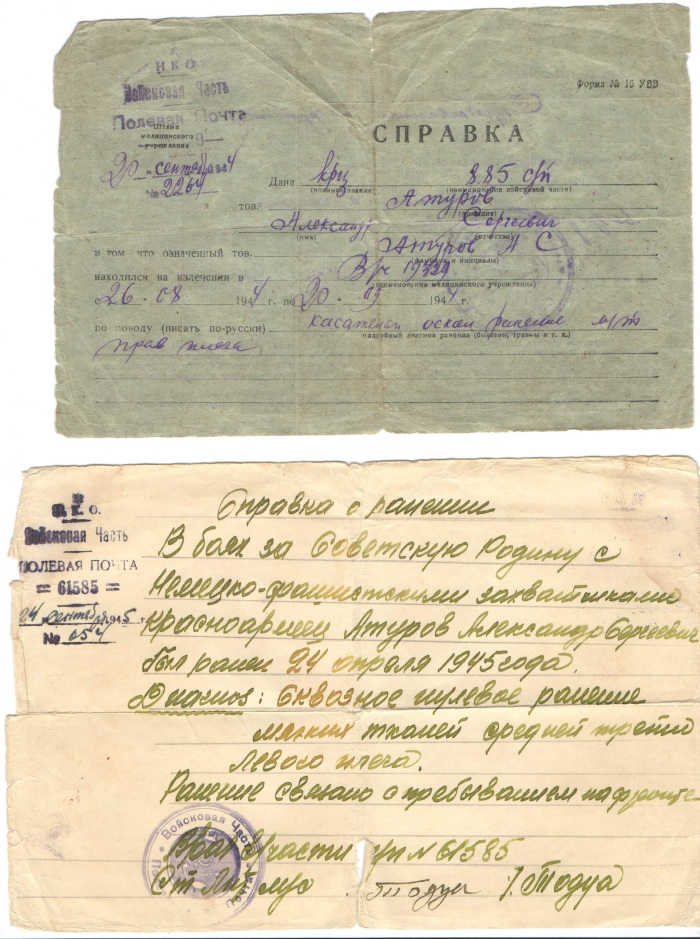 НКО
Войсковая Часть
Полевая Почта
Форма № 16 УВВ
Штамп
медицинского
учреждения
СПРАВКА
20 сентяб 4
№ 2264
Дана крц 885 с/п
(воинское звание) (наименование войсковой части)
тов. Атуров
(фамилия)
Александр Сергеевич
(имя) (отчество)
в том что означенный тов. Атуров А С
(фамилия и инициалы)
находился на излечении в
(наименование медицинского учреждения)
с 26 · 08 1944 г. по 20 · 09 1944 г.
по поводу (писать по-русски) касательн оскол ранение м/т
(подробный диагноз ранения (болезни, травмы и т. д.)
прав
Н. К. О.
Войсковая Часть
ПОЛЕВАЯ ПОЧТА
= 61585 =
24 сентября 1945 г.
№ 054
Справка о ранении
В боях за Советскую Родину с
Немецко-фашистскими захватчиками
красноармеец Атуров Александр Сергеевич
был ранен 24 апреля 1945 года.
Диагноз: Сквозное пулевое ранение
мягких тканей средней трети
левого плеча.
Ранение связано с пребыванием на фронте
Войсковая Часть
Почта
Врач В/части пп № 61585
Ст. л-т м/с Тодуа /. Тодуа